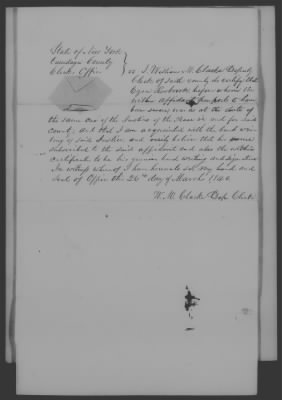 State of New York
Onondaga County
Clerks Office } ss I, William M. Clarke Deputy
Clerk of said county do certify that
before whom the
within Affidavit purports to have
been sworn was at the date of
the same one of the Justices of the Peace in and for said
county; and that I am acquainted with the hand wri-
ting of said Justice and verily believe that his name
subscribed to the said affidavit and also the within
certificate to be his genuine hand writing and signature
In witness whereof I have hereunto set my hand and
seal of Office the 26th day of March 1840
W. M. Clarke Dep Clerk